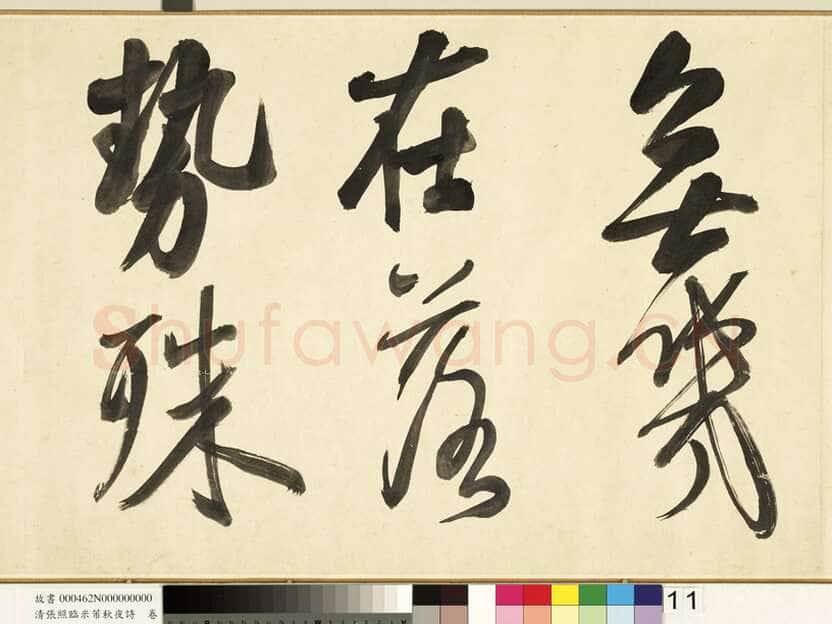 在落
勢殊
Shufawang.cn
故書 000462N000000000
清張照臨米芾秋夜詩 卷
11